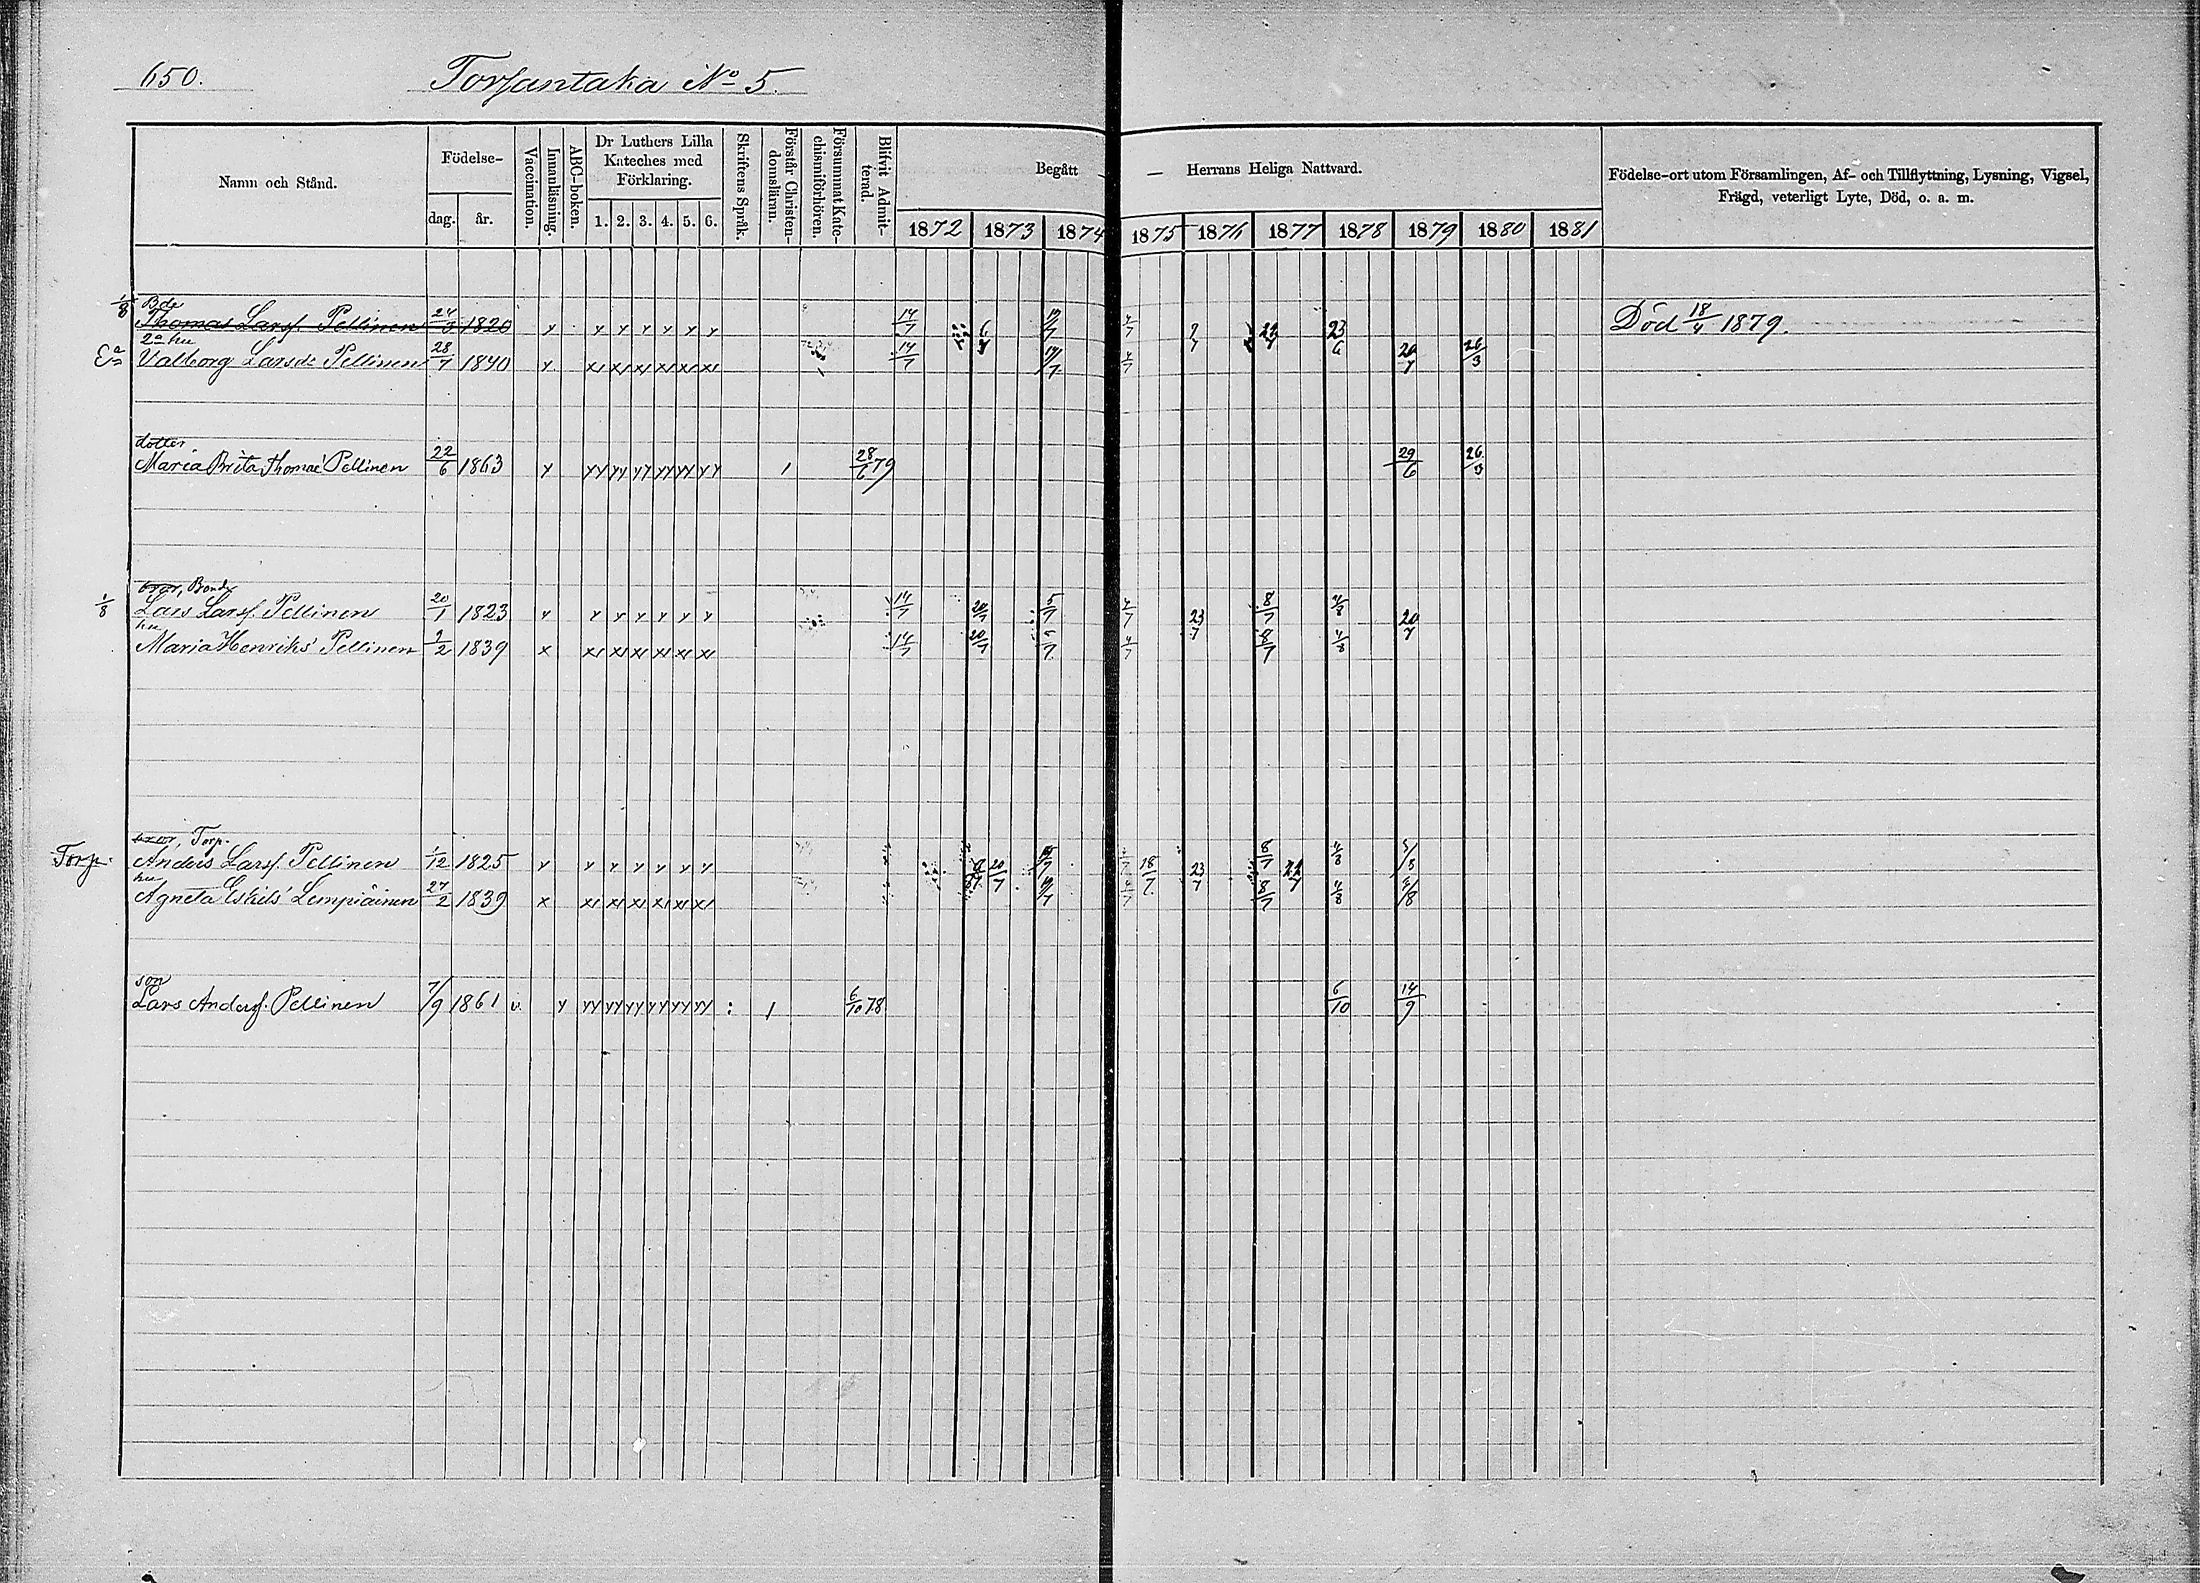 650. Torfantaka No 5.
Namn och Stånd. Födelse- dag. år. Vaccination. Innanläsning. ABC-boken. Dr Luthers Lilla Kateches med Förklaring. 1. 2. 3. 4. 5. 6. Skriftens Språk. Förstår Christendomsläran. Försummat Katechismiförhören. Blifvit Admitterad. Begått — Herrans Heliga Nattvard. 1872 1873 1874 1875 1876 1877 1878 1879 1880 1881 Födelse-ort utom Församlingen, Af- och Tillflyttning, Lysning, Vigsel, Frägd, veterligt Lyte, Död, o. a. m.
1/8 Bde
Thomas Larsf. Pellinen 24/3 1820 y y y y y y y 14/7 23/6 Död 18/4 1879.
2a hu
Ea Valborg Larsdr Pellinen 28/7 1840 y xi xi xi xi xi xi 14/7 20/7 26/3
dotter
Maria Brita Thomae' Pellinen 22/6 1863 y yy yy yy yy yy yy 1 28/6 79 29/6 26/3
bror, Bonde
1/8 Lars Larsf. Pellinen 20/1 1823 y y y y y y y 14/7 20/7 5/7 23/7 8/7 4/8 20/7
hu
Maria Henriks' Pellinen 9/2 1839 x xi xi xi xi xi xi 14/7 20/7 8/7 4/8
bror, Torp.
Torp. Anders Larsf. Pellinen 1/12 1825 y y y y y y y 20/7 18/7 23/7 8/7 4/8 3/8
hu
Agneta Eskils' Lempiäinen 27/2 1839 x xi xi xi xi xi xi 8/7 4/8
son
Lars Andersf. Pellinen 7/9 1861 v. y yy yy yy yy yy yy : 1 6/10 78 6/10 14/9